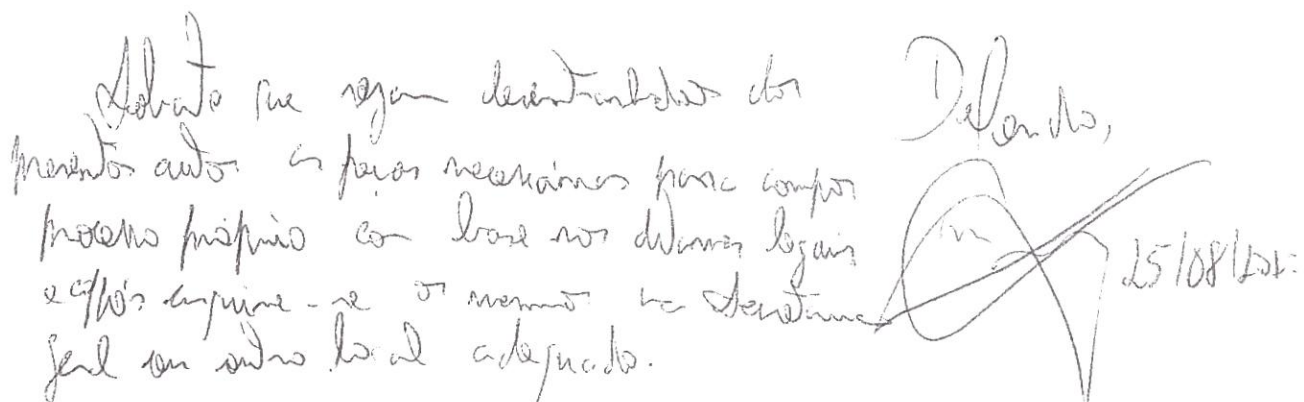 Solicito que sejam desentranhados dos
presentes autos as peças necessárias para compor
processo próprio com base nos ditames legais
e após arquive-se o mesmo na Secretaria
geral em outro local adequado.
Defendo,
25/08/